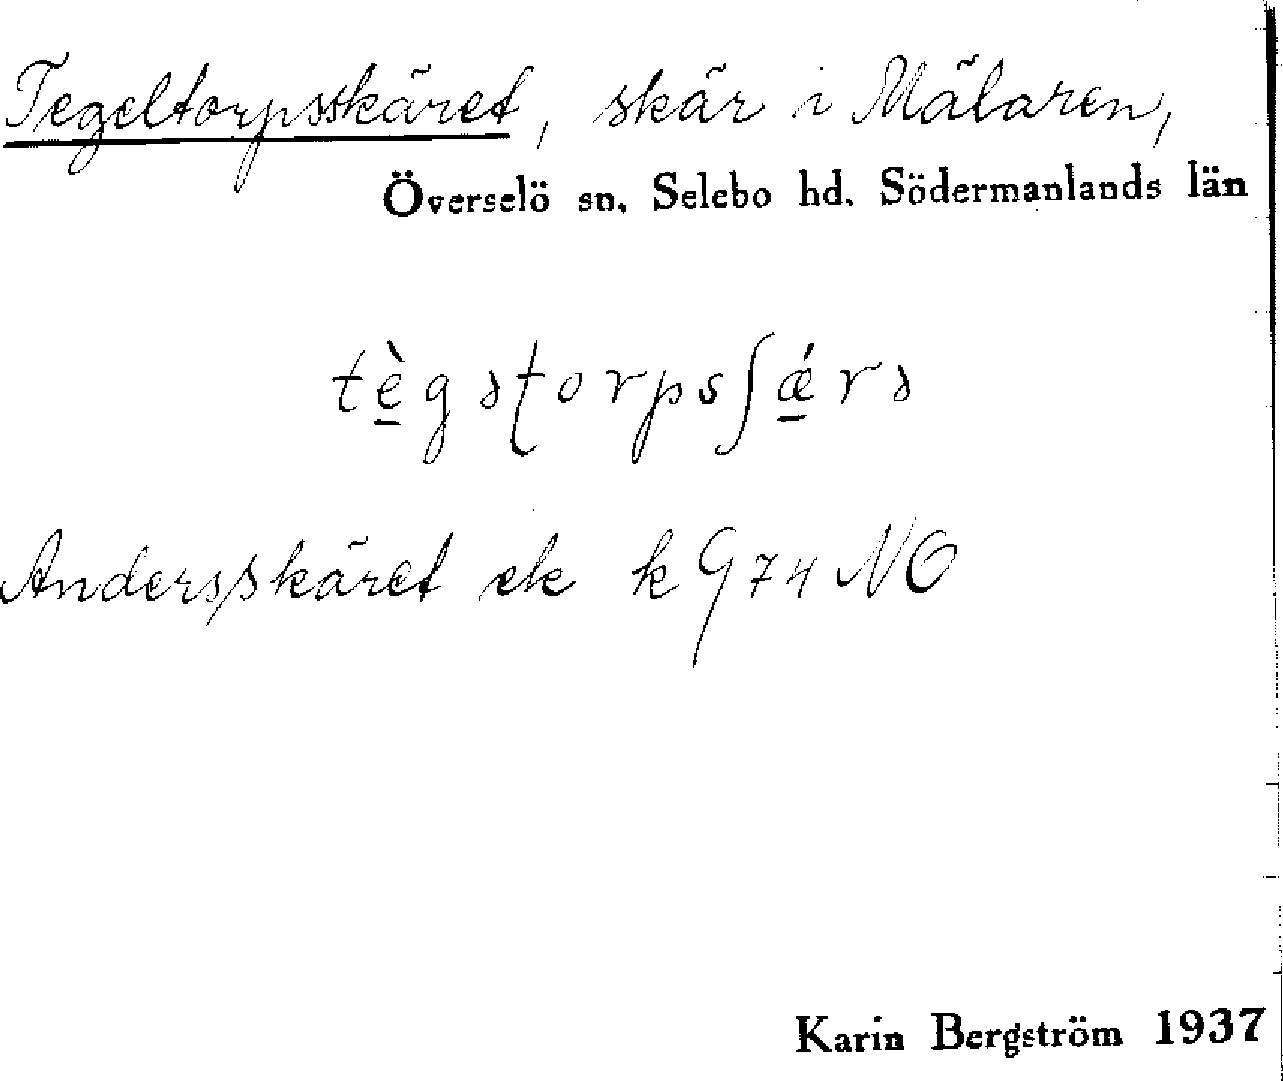 Tegeltorpsskäret, skär i Mälaren,
Överselö sn. Selebo hd. Södermanlands län
tè̱gəʈorpsʃǽ̱rə
Andersskäret ek k G 74 NO
Karin Bergström 1937